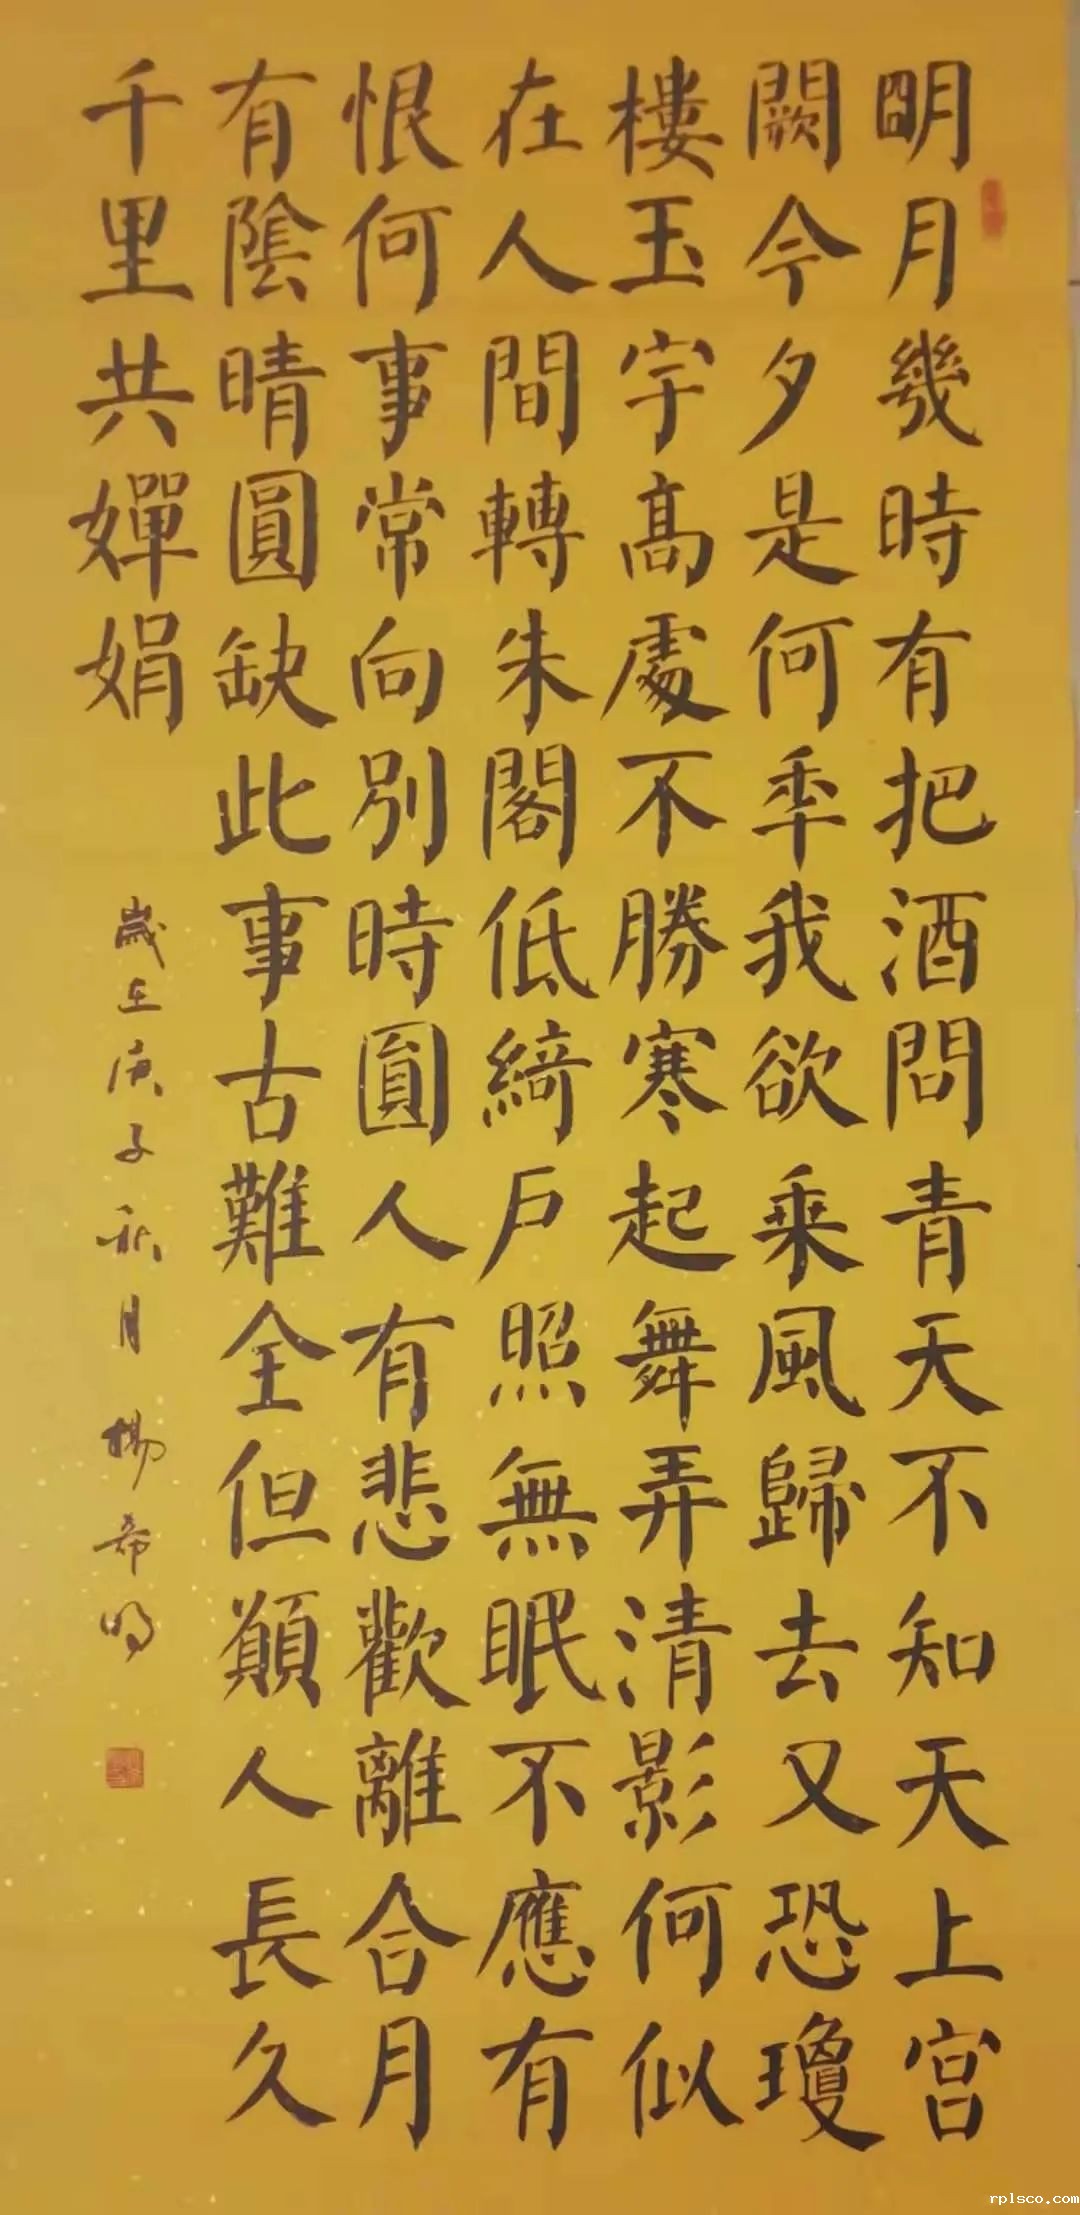 明月幾時有把酒問青天不知天上宮
闕今夕是何年我欲乘風歸去又恐瓊
樓玉宇髙處不勝寒起舞弄清影何似
在人間轉朱閣低綺戶照無眠不應有
恨何事常向別時圓人有悲歡離合月
有陰晴圓缺此事古難全但願人長久
千里共嬋娟
歲在庚子秋月楊希明
rplsco.com